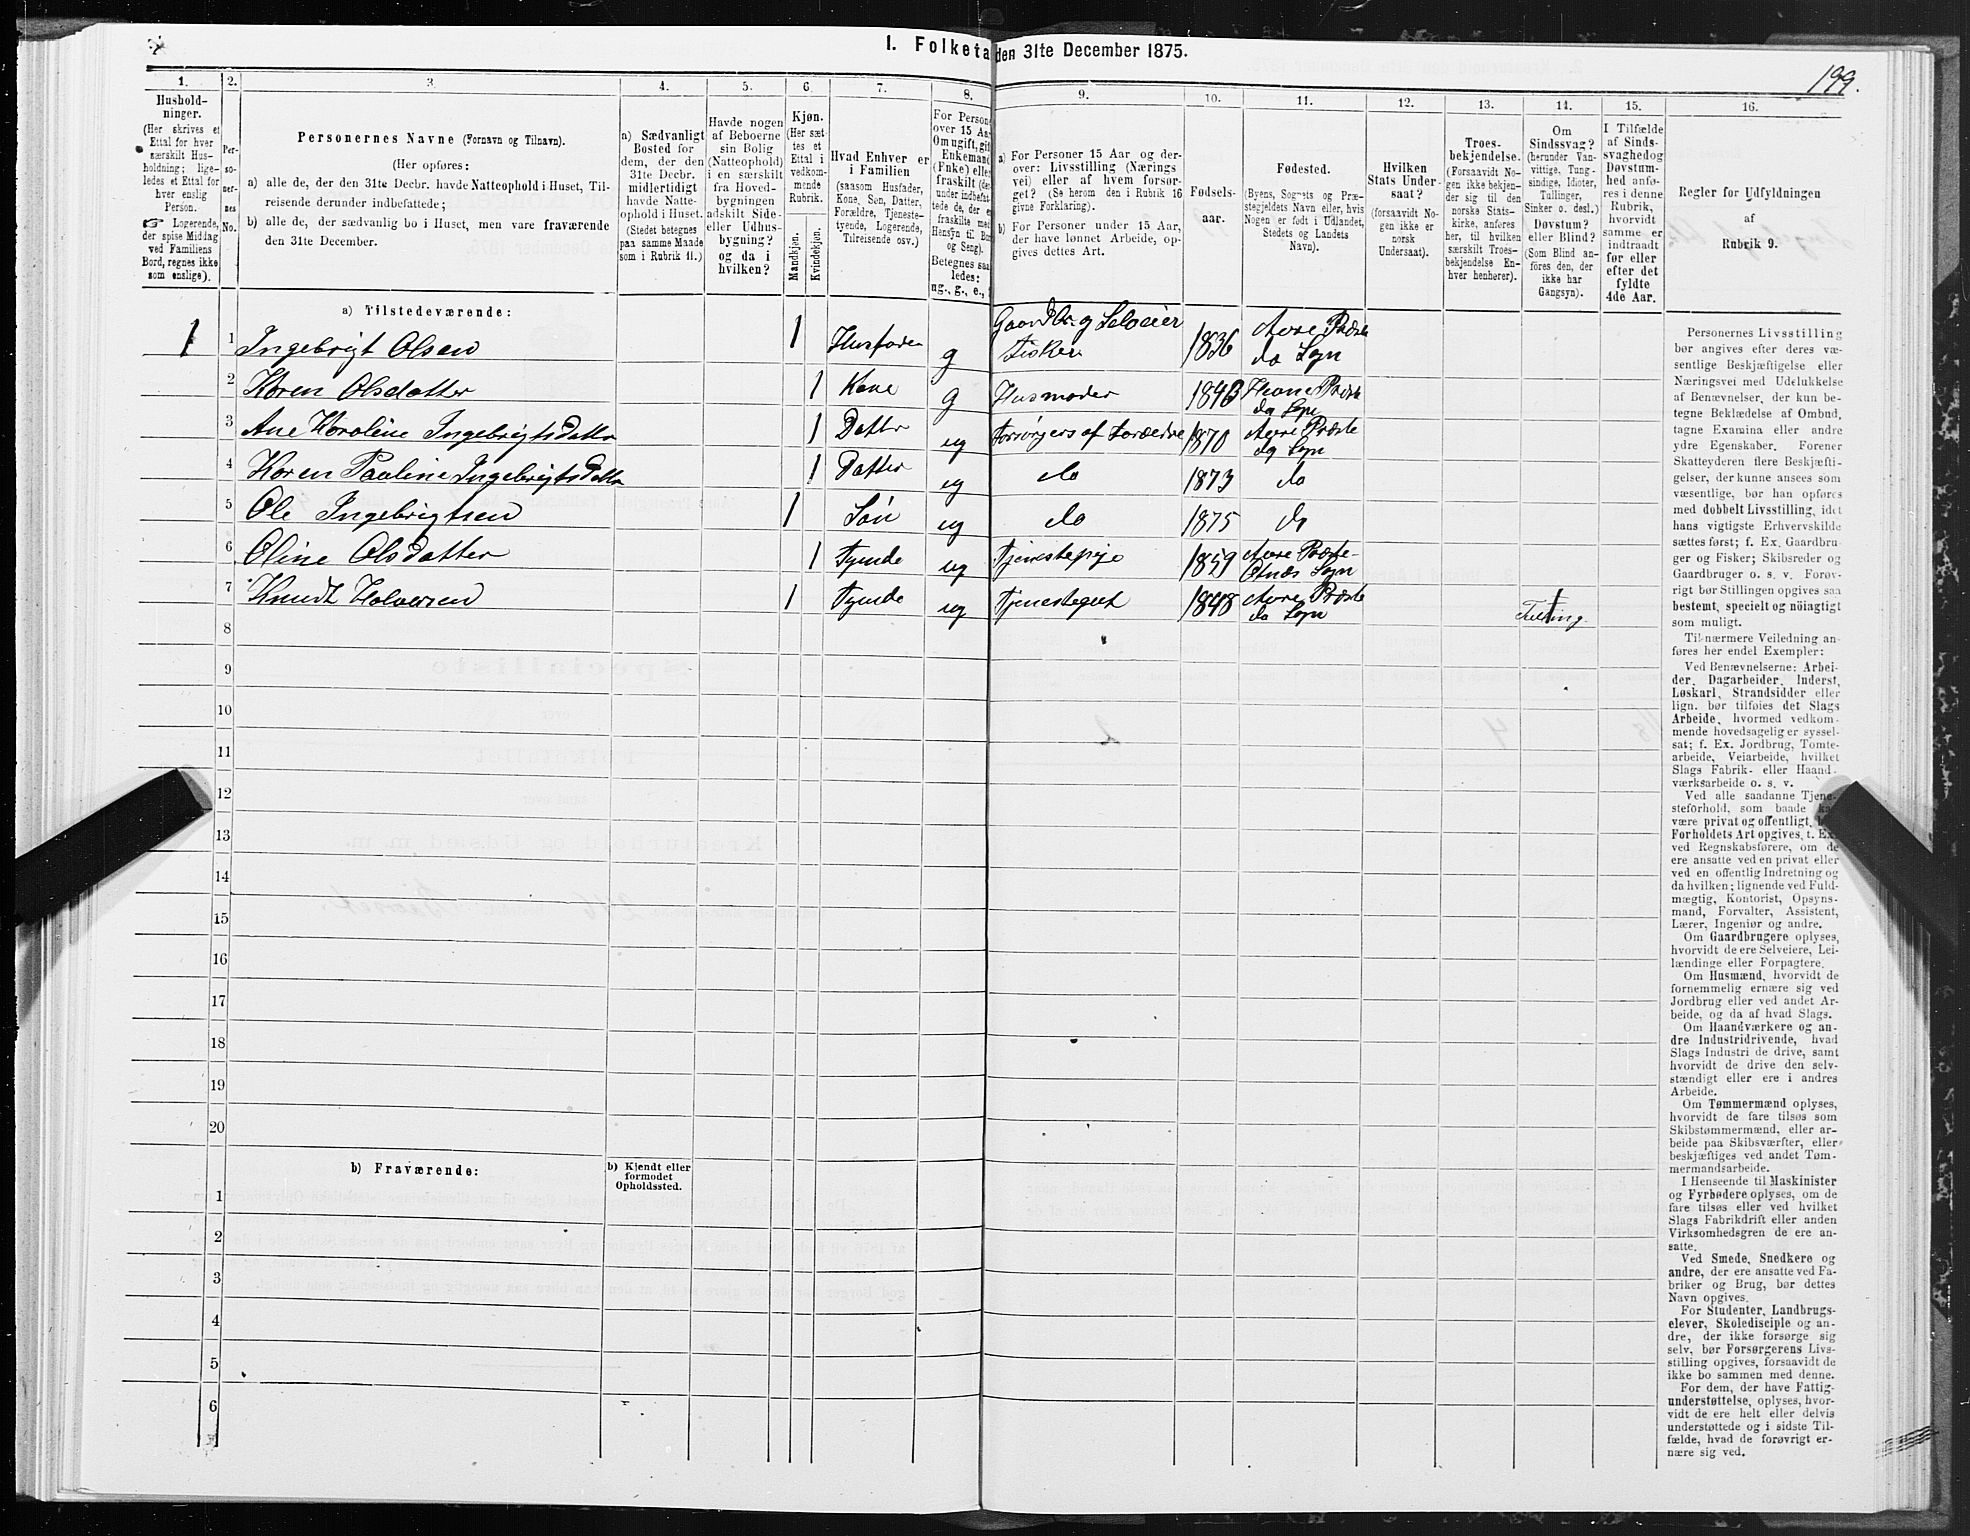 I. Folketa den 31te December 1875.
199.
1. 2. 3. 4. 5. 6. 7. 8. 9. 10. 11. 12. 13. 14. 15. 16.
Hushold-
ninger.
(Her skrives et
Ettal for hver
særskilt Hus-
holdning; lige-
ledes et Ettal for
hver enslig
Person.
☞ Logerende,
der spise Middag
ved Familiens
Bord, regnes ikke
som enslige).
Per-
so-
ner-
nes
No.
Personernes Navne (Fornavn og Tilnavn).
(Her opføres:
a) alle de, der den 31te Decbr. havde Natteophold i Huset, Til-
reisende derunder indbefattede;
b) alle de, der sædvanlig bo i Huset, men vare fraværende
den 31te December.
a) Sædvanligt
Bosted for
dem, der den
31te Decbr.
midlertidigt
havde Natte-
ophold i Huset.
(Stedet betegnes
paa samme Maade
som i Rubrik 11.)
Havde nogen
af Beboerne
sin Bolig
(Natteophold)
i en særskilt
fra Hoved-
bygningen
adskilt Side-
eller Udhus-
bygning?
og da i
hvilken?
Kjøn.
(Her sæt-
tes et
Ettal i
vedkom-
mende
Rubrik.
Mandkjøn.
Kvindekjøn.
Hvad Enhver er
i Familien
(saasom Husfader,
Kone, Søn, Datter,
Forældre, Tjeneste-
tyende, Logerende,
Tilreisende osv.)
For Person
over 15 Aa
Om ugift, gif
Enkemand
(Enke) elle
fraskilt (de
under indbefat-
tede de, der e
fraskilte med
Hensyn til Bo
og Seng).
Betegnes saa
ledes:
ug., g., e.,
a) For Personer 15 Aar og der-
over: Livsstilling (Nærings
vei) eller af hvem forsør-
get? (Se herom den i Rubrik 16
givne Forklaring).
b) For Personer under 15 Aar,
der have lønnet Arbeide, op-
gives dettes Art.
Fødsels-
aar.
Fødested.
(Byens, Sognets og Præ-
stegjeldets Navn eller, hvis
Nogen er født i Udlandet,
Stedets og Landets
Navn).
Hvilken
Stats Under-
saat?
(forsaavidt No-
gen ikke er
norsk
Undersaat).
Troes-
bekjendelse.
(Forsaavidt No-
gen ikke bekjen-
der sig til den
norske Stats-
kirke, anføres
her, til hvilken
særskilt Troes-
bekjendelse En-
hver henhører).
Om
Sindssvag?
(herunder Van-
vittige, Tung-
sindige, Idioter,
Tullinger,
Sinker o. desl.)
Døvstum?
eller Blind?
(Som Blind an-
føres den, der
ikke har
Gangsyn).
I Tilfælde
af Sinds-
svaghed og
Døvstum-
hed anfø-
res i denne
Rubrik,
hvorvidt
samme er
indtraadt
før eller
efter det
fyldte
4de Aar.
Regler for Udfyldningen
af
Rubrik 9.
a) Tilstedeværende:
1 1 Ingebrigt Olsen 1 Husfader g Gaardbr. og Selveier Fisker 1836 Aure Præste do Sogn
2 Karen Olsdatter 1 Kone g Husmoder 1843 Præste do Sogn
3 Ane Karoline Ingebrigtsdatter 1 Datter ug Forsørges af Forældre 1870 Aure Præste do Sogn
4 Karen Pauline Ingebrigtsdatter 1 Datter ug do 1873 do
5 Ole Ingebrigtsen 1 Søn ug do 1875 do
6 Oline Olsdatter 1 Tyende ug Tjenestepige 1859 Aure Præste- Sogn
7 Knudt Halvorsen 1 Tyende ug Tjenestegut 1848 Aure Præste do Sogn 1
8
9
10
11
12
13
14
15
16
17
18
19
20
b) Fraværende:
b) Kjendt eller
formodet
Opholdssted.
1
2
3
4
5
6
Personernes Livsstilling
bør angives efter deres væ-
sentlige Beskjæftigelse eller
Næringsvei med Udelukkelse
af Benævnelser, der kun be-
tegne Beklædelse af Ombud,
tagne Examina eller andre
ydre Egenskaber. Forener
Skatteyderen flere Beskjæfti-
gelser, der kunne ansees som
væsentlige, bør han opføres
med dobbelt Livsstilling, idet
hans vigtigste Erhvervskilde
sættes først; f. Ex. Gaardbru-
ger og Fisker; Skibsreder og
Gaardbruger o. s. v. Forøv-
rigt bør Stillingen opgives saa
bestemt, specielt og nöiagtigt
som muligt.
Til nærmere Veiledning an-
føres her endel Exempler:
Ved Benævnelserne: Arbei-
der, Dagarbeider, Inderst,
Løskarl, Strandsidder eller
lign. bør tilføies det Slags
Arbeide, hvormed vedkom-
mende hovedsagelig er syssel-
sat; f. Ex. Jordbrug, Tomte-
arbeide, Veiarbeide, hvilket
Slags Fabrik- eller Haand-
værksarbeide o. s. v.
Ved alle saadanne Tjene-
steforhold, som baade ka
være privat og offentligt,
Forholdets Art opgives, t. Ex.
ved Regnskabsførere, om de
ere ansatte ved en privat eller
ved en offentlig Indretning og
da hvilken; lignende ved Fuld-
mægtig, Kontorist, Opsyns-
mand, Forvalter, Assistent,
Lærer, Ingeniør og andre.
Om Gaardbrugere oplyses,
hvorvidt de ere Selveiere, Lei-
lændinge eller Forpagtere.
Om Husmænd, hvorvidt de
fornemmelig ernære sig ved
Jordbrug eller ved andet Ar-
beide, og da af hvad Slags.
Om Haandværkere og an-
dre Industridrivende, hvad
Slags Industri de drive, samt
hvorvidt de drive den selv-
stændigt eller ere i andres
Arbeide.
Om Tømmermænd oplyses,
hvorvidt de fare tilsøs som
Skibstømmermænd, eller ar-
beide paa Skibsværfter, eller
beskjæftiges ved andet Tøm-
mermandsarbeide.
I Henseende til Maskinister
og Fyrbødere oplyses, om de
fare tilsøs eller ved hvilket
Slags Fabrikdrift eller anden
Virksomhedsgren de ere an-
satte.
Ved Smede, Snedkere og
andre, der ere ansatte ved Fa-
briker og Brug, bør dettes
Navn opgives.
For Studenter, Landbrugs-
elever, Skoledisciple og an-
dre, der ikke forsørge sig
selv, bør Forsørgerens Livs-
stilling opgives, forsaavidt de
ikke bo sammen med denne.
For dem, der have Fattig-
understøttelse, oplyses, hvor-
vidt de ere helt eller delvis
understøttede og i sidste Til-
fælde, hvad de forøvrigt er-
nære sig ved.